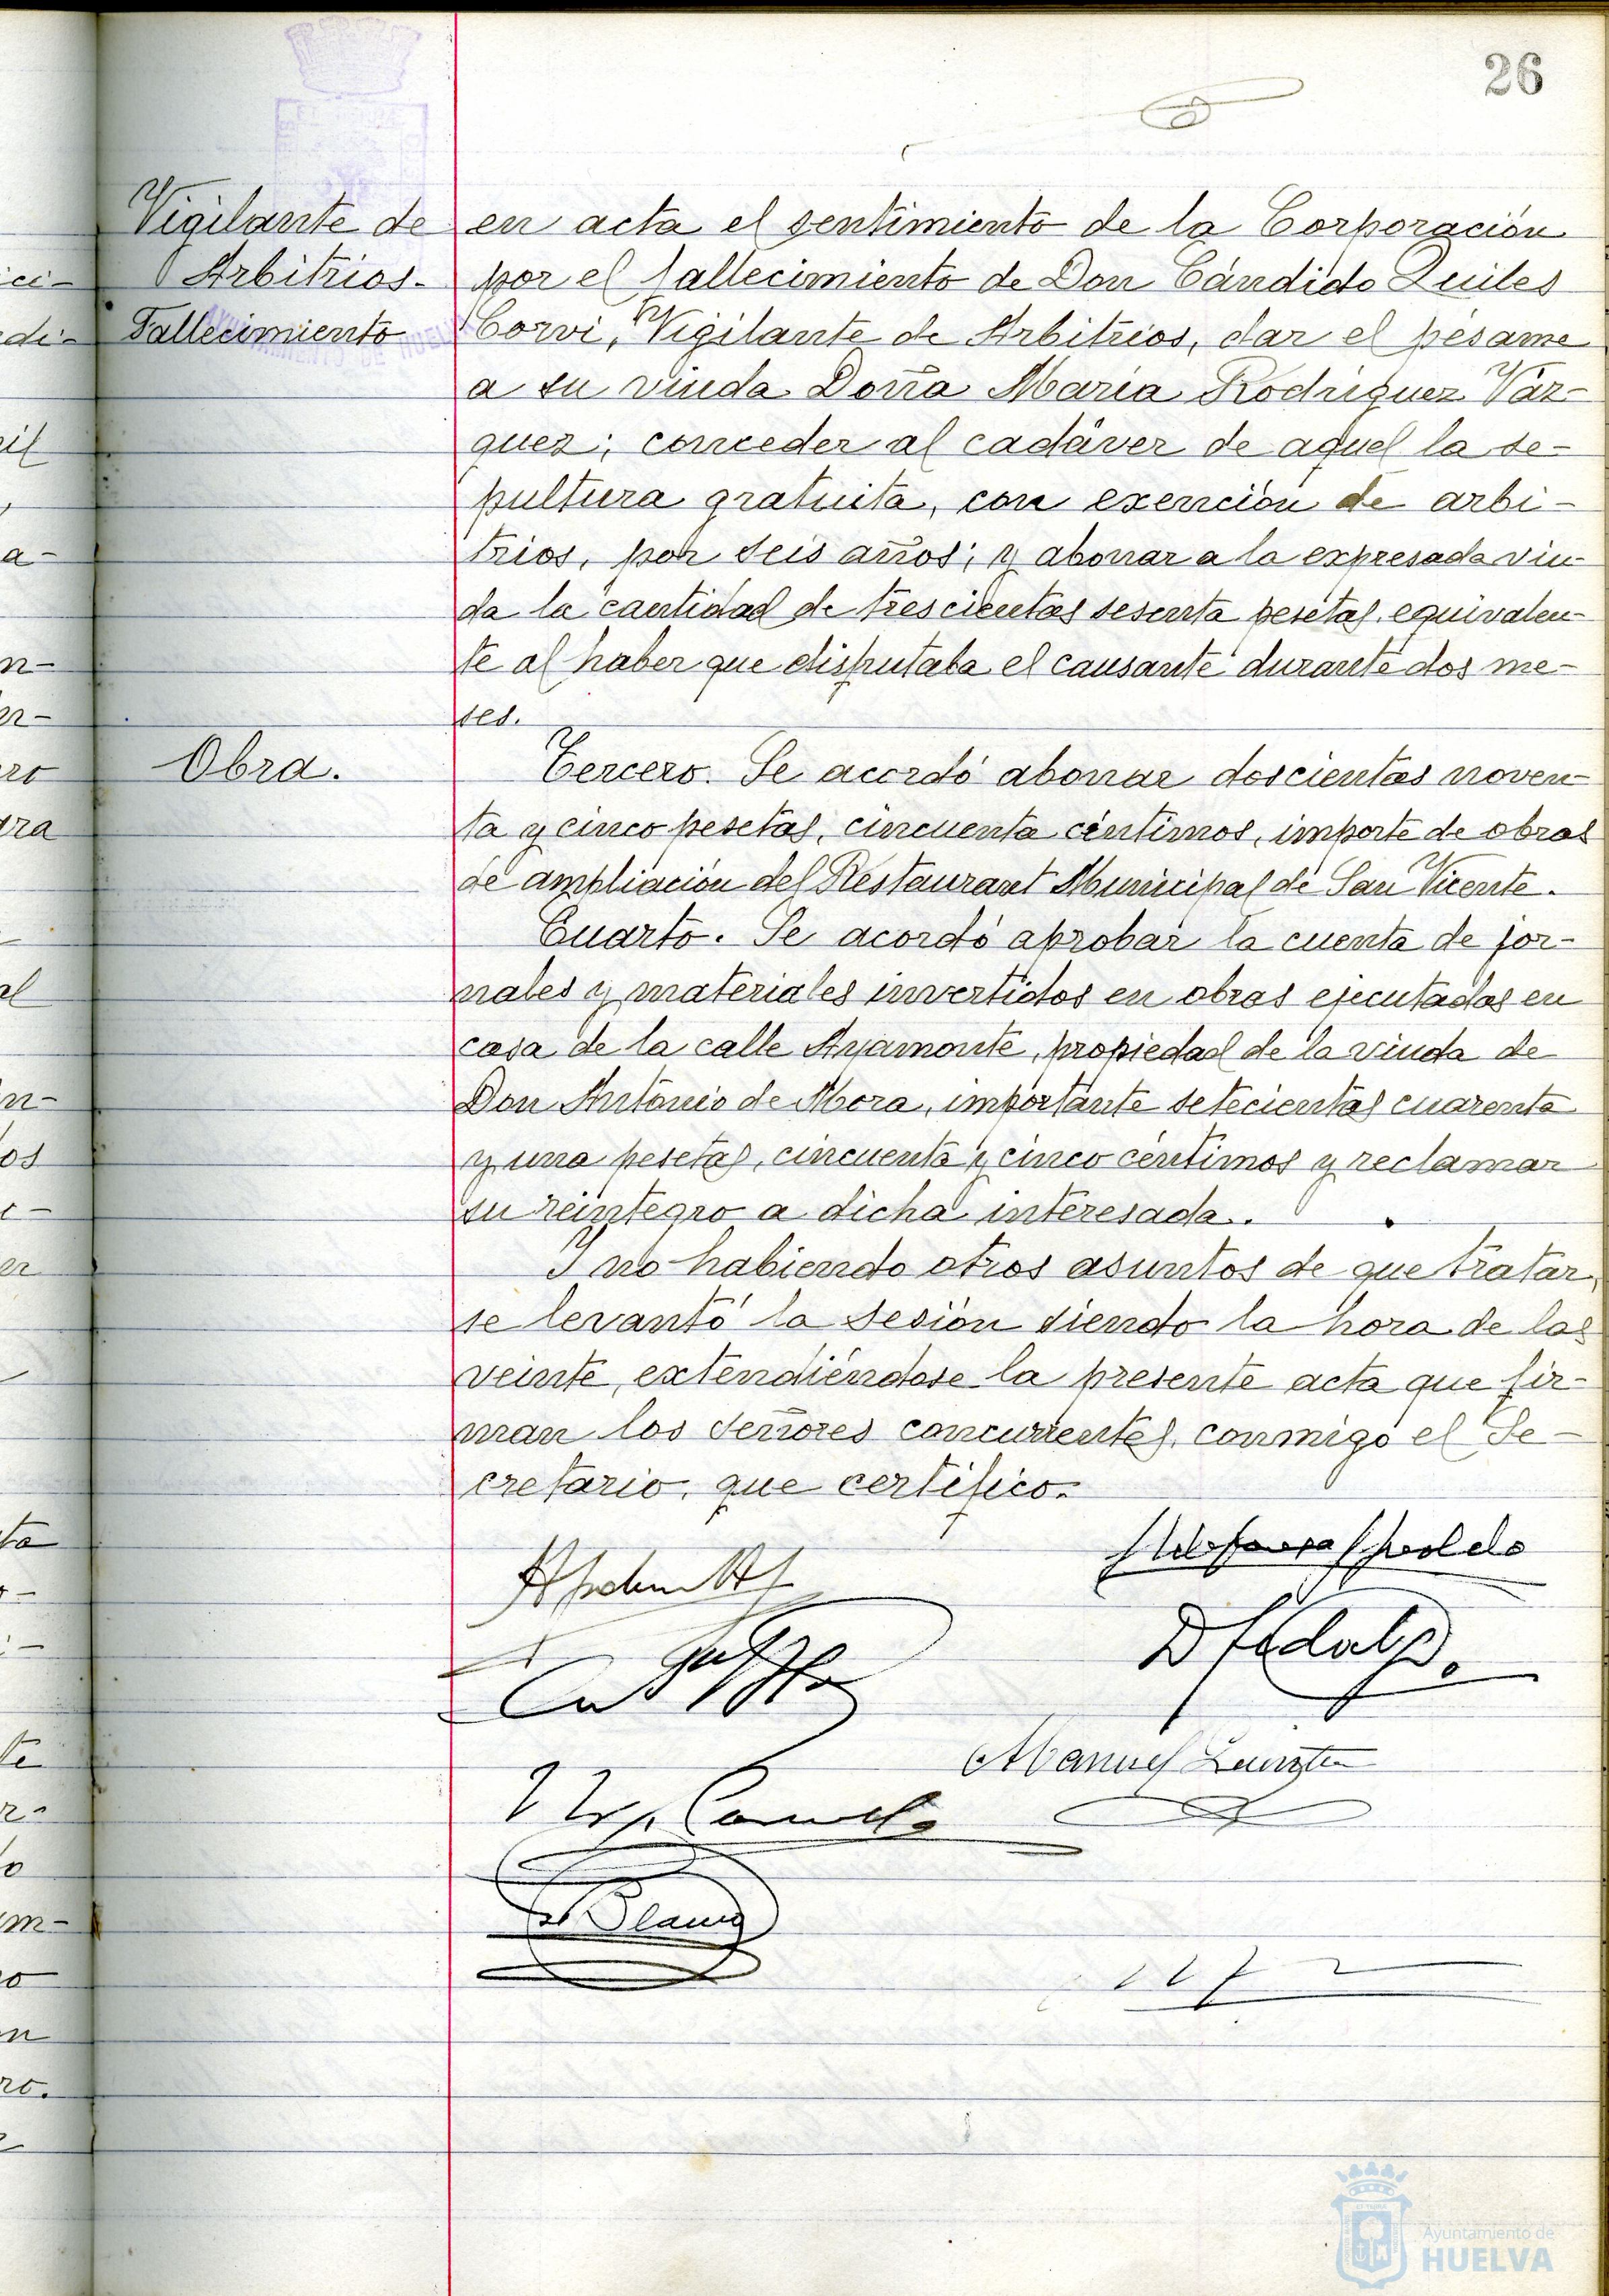 26
Vigilante de
Arbitrios.
Fallecimiento
en acta el sentimiento de la Corporación
por el fallecimiento de Don Cándido Quiles
Corvi, Vigilante de Arbitrios, dar el pésame
a su viuda Doña María Rodríguez Váz-
quez; conceder al cadáver de aquel la se-
pultura gratuita, con exención de arbi-
trios, por seis años; y abonar a la expresada viu-
da la cantidad de trescientas sesenta pesetas, equivalen-
te al haber que disfrutaba el causante durante dos me-
ses.
Obra.
Tercero. Se acordó abonar doscientas noven-
ta y cinco pesetas, cincuenta céntimos, importe de obras
de ampliación del Restaurant Municipal de San Vicente.
Cuarto. Se acordó aprobar la cuenta de jor-
nales y materiales invertidos en obras ejecutadas en
casa de la calle Ayamonte, propiedad de la viuda de
Don Antonio de Mora, importante setecientas cuarenta
y una pesetas, cincuenta y cinco céntimos y reclamar
su reintegro a dicha interesada.
Y no habiendo otros asuntos de que tratar,
se levantó la sesión siendo la hora de las
veinte, extendiéndose la presente acta que fir-
man los señores concurrentes, conmigo el Se-
cretario, que certifico.
Manuel
Ayuntamiento de
HUELVA